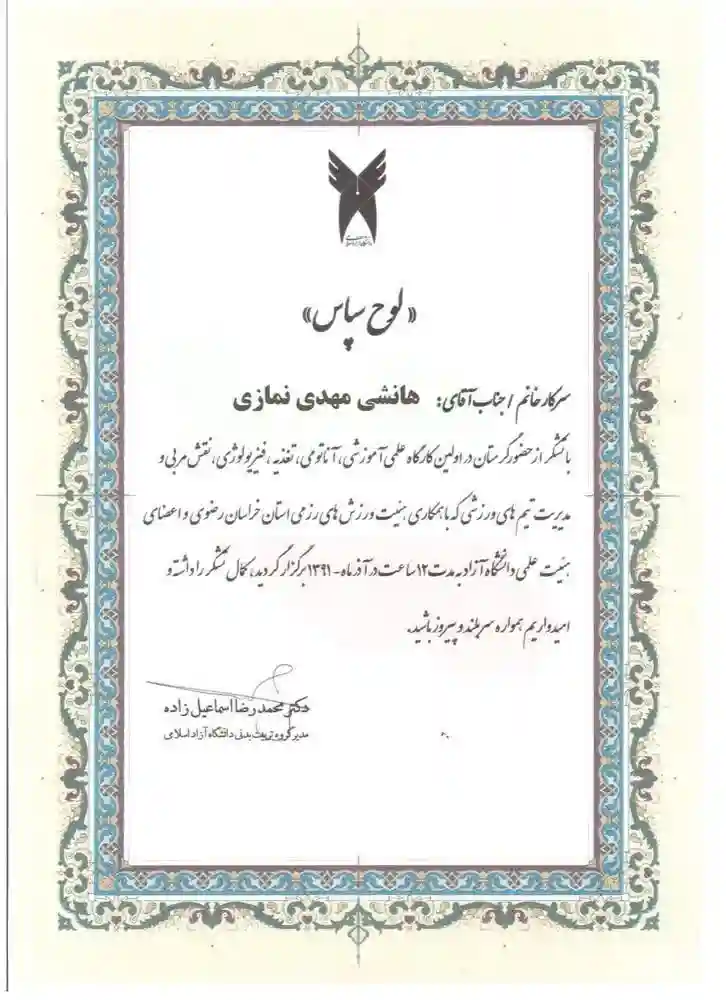 دانشگاه آزاد اسلامی
«لوح سپاس»
سرکار خانم / جناب آقای: هانشی مهدی نمازی
با تشکر از حضور گرمتان در اولین کارگاه علمی آموزشی، آناتومی، تغذیه، فیزیولوژی، نقش مربی و
مدیریت تیم های ورزشی که با همکاری هیئت ورزش های رزمی استان خراسان رضوی و اعضای
هیئت علمی دانشگاه آزاد به مدت ۱۲ ساعت در آذر ماه - ۱۳۹۱ برگزار گردید، کمال تشکر را داشته و
امیدواریم همواره سربلند و پیروز باشید.
دکتر محمدرضا اسماعیل زاده
مدیر گروه تربیت بدنی دانشگاه آزاد اسلامی